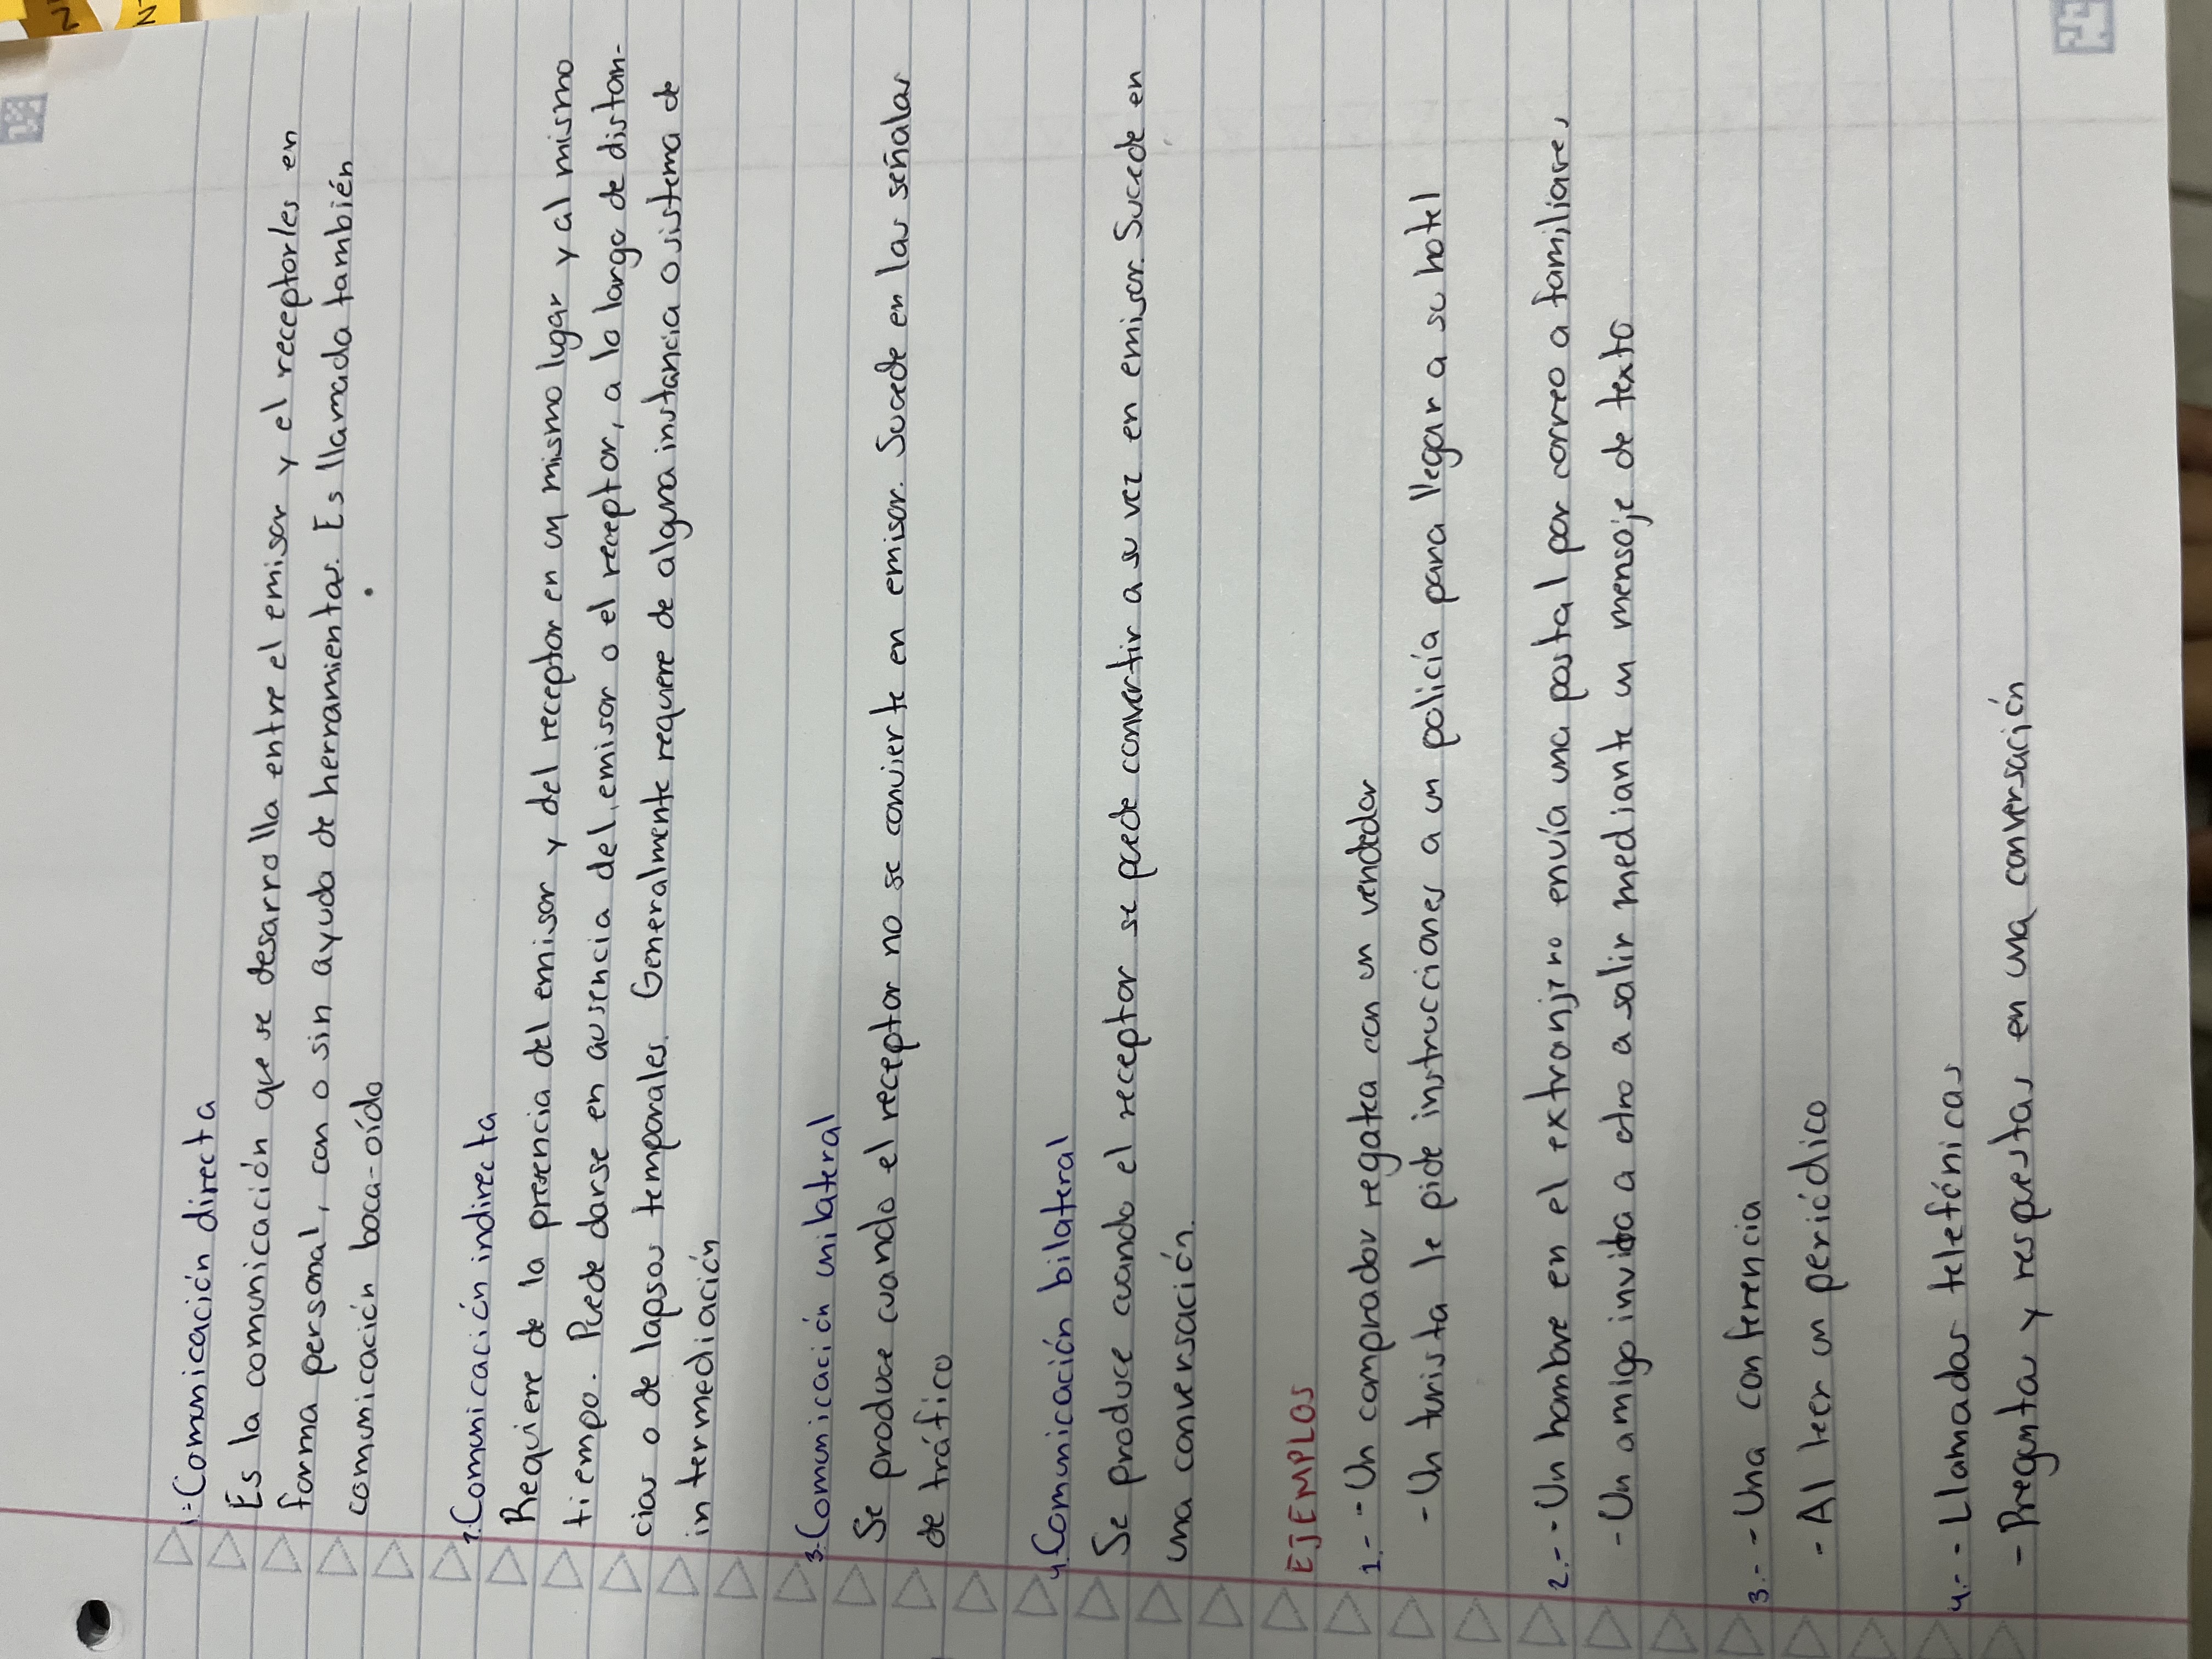 1.-Comunicación directa
Es la comunicación que se desarrolla entre el emisor y el receptorles en
forma personal, con o sin ayuda de herramientas. Es llamada también
comunicación boca-oído
2.Comunicación indirecta
Requiere de la presencia del emisor y del receptor en un mismo lugar y al mismo
tiempo. Puede darse en ausencia del emisor o el receptor, a lo largo de distan-
cias o de lapsos temporales. Generalmente requiere de alguna instancia o sistema de
intermediación
3.Comunicación unilateral
Se produce cuando el receptor no se convierte en emisor. Sucede en las señalas
de tráfico
4.Comunicación bilateral
Se produce cuando el receptor se puede convertir a su vez en emisor. Sucede en
una conversación.
EJEMPLOS
1.- - Un comprador regatea con un vendedor
- Un turista le pide instrucciones a un policía para llegar a su hotel
2.- - Un hombre en el extranjero envía una postal por correo a familiares
- Un amigo invita a otro a salir mediante un mensaje de texto
3.- - Una conferencia
- Al leer un periódico
4.- - Llamadas telefónicas
- Preguntas y respuestas en una conversación